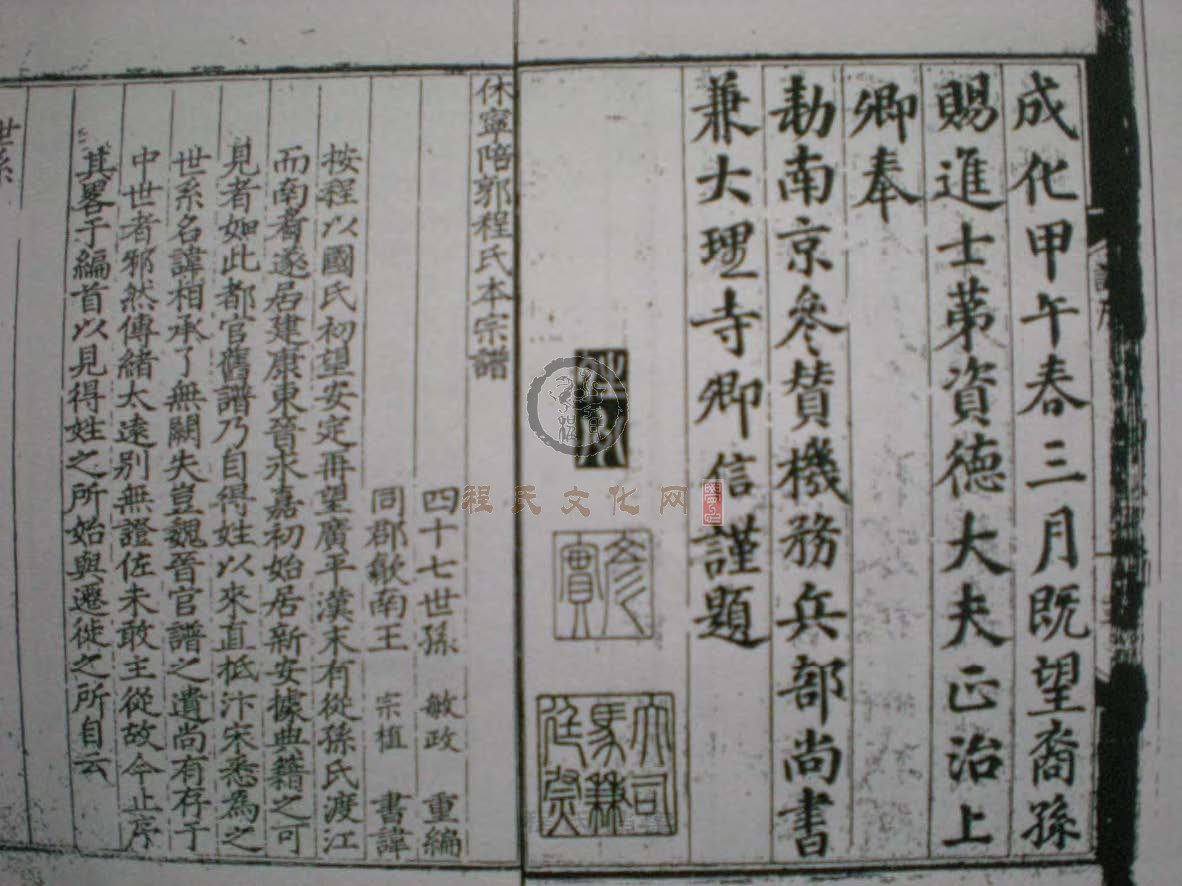 成化甲午春三月既望裔孫
賜進士第資德大夫正治上
卿奉
勑南京參贊機務兵部尚書
兼大理寺卿信謹題
程氏文化网
休寧陪郭程氏本宗譜
四十七世孫 敏政 重編
同郡歙南王 宗植 書諱
按程以國氏初望安定再望廣平漢末有從孫氏渡江
而南者遂居建康東晉永嘉初始居新安據典籍之可
見者如此都官舊譜乃自得姓以來直柢汴宋悉為之
世系名諱相承了無闕失豈魏晉官譜之遺尚有存于
中世者邪然傳緒大遠別無證佐未敢主從故今止序
其畧于編首以見得姓之所始與遷徙之所自云
世系